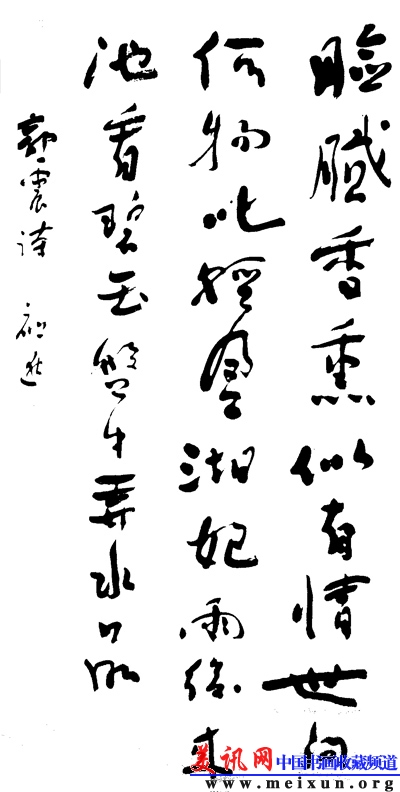 臉膩香薰似有情世间
何物比輕盈湘妃雨後来
池看碧玉盤中弄水晶
郭震诗
美讯网中国书画收藏频道
www.meixun.org